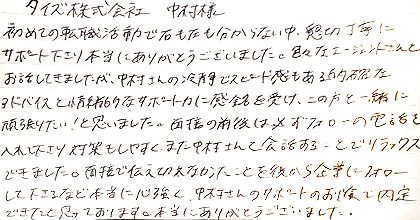 タイズ株式会社 中村様
初めての転職活動で右も左も分からない中、懇切丁寧に
サポート下さり本当にありがとうございました。色々なエージェントさんと
お話してきましたが、中村さんの冷静でスピード感もある的確な
アドバイスと情熱的なサポート力に感銘を受け、この方と一緒に
頑張りたい!と思いました。面接の前後は必ずフォローの電話を
入れて下さり対策もしやすく、また中村さんと会話することでリラックス
できました。面接で伝えきれなかったことを後から企業にフォロー
して下さるなど本当に心強く、中村さんのサポートのお陰で内定
できたと思っております。本当にありがとうございました。